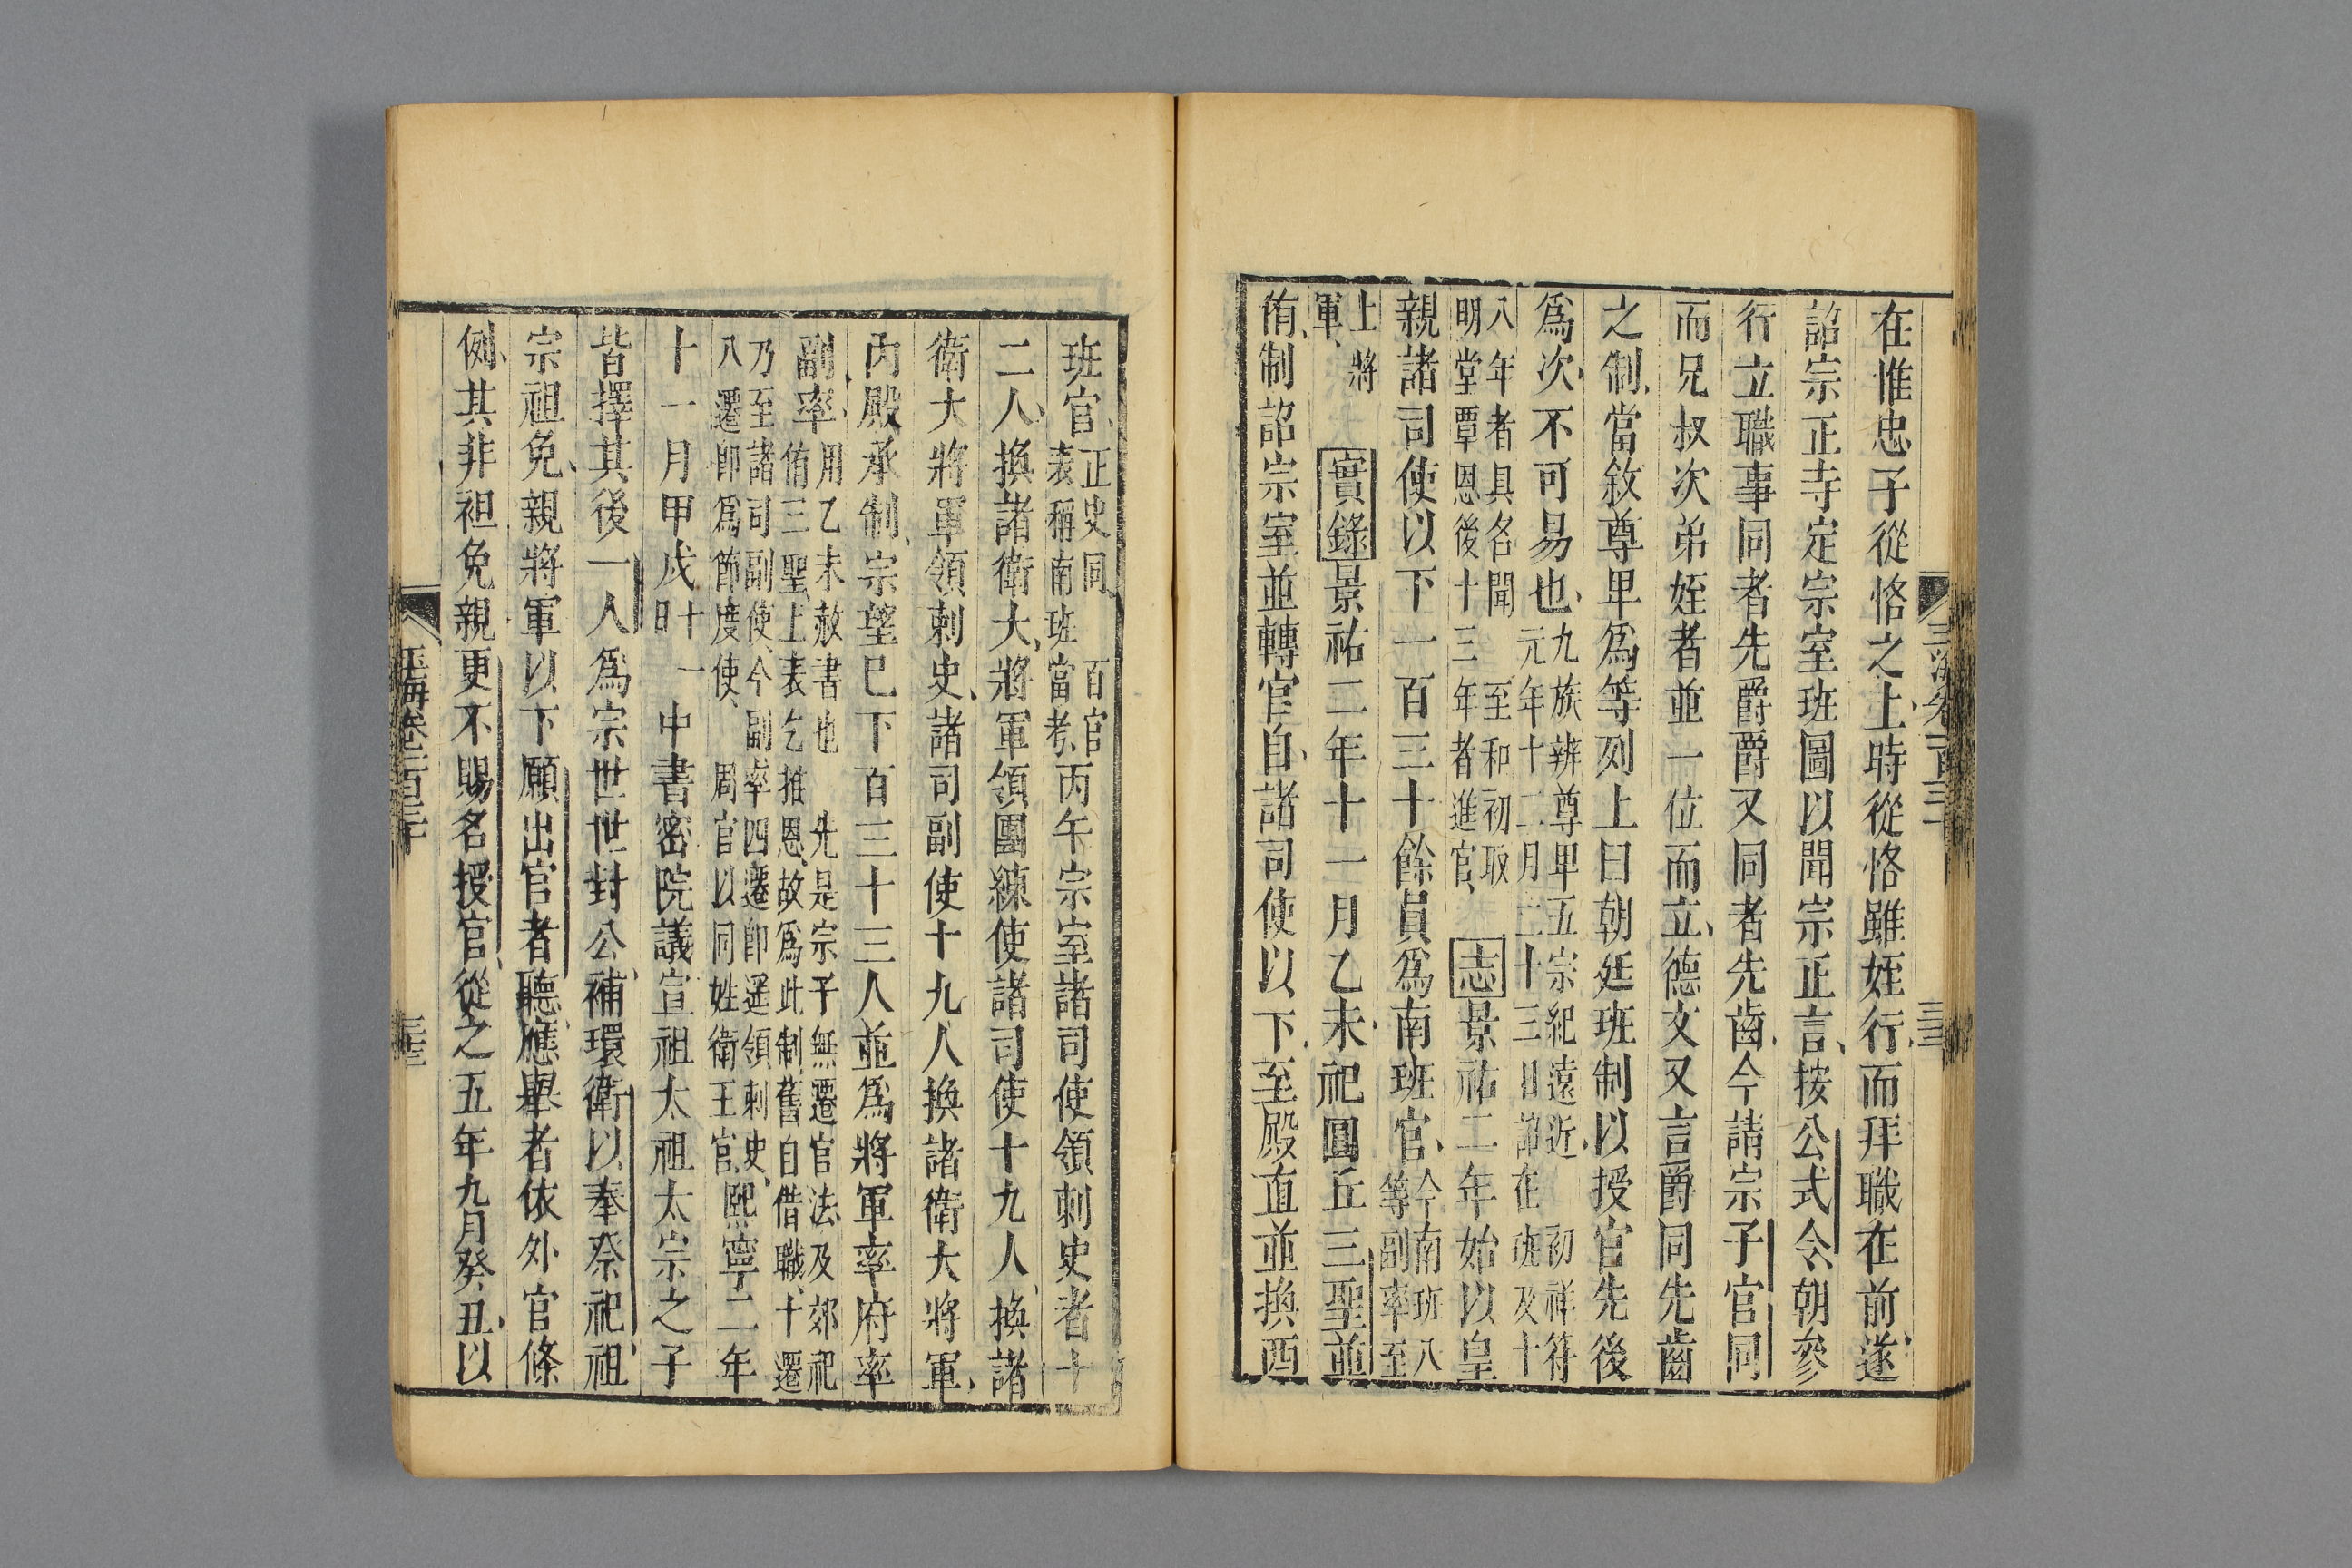 在惟忠子從恪之上時從恪雖姪行而拜職在前遂
詔宗正寺定宗室班圖以聞宗正言按公式令朝參
行立職事同者先爵爵又同者先齒今請宗子官同
而兄叔次弟姪者並一位而立德文又言爵同先齒
之制當敘尊卑爲等列上曰朝廷班制以授官先後
爲次不可易也九族辨尊卑五宗紀遠近初祥符
元年十二月二十三日詔在班及十
八年者具名聞至和初取
明堂覃恩後十三年者進官志景祐二年始以皇
親諸司使以下一百三十餘員爲南班官今南班八
等副率至
上將
軍實錄景祐二年十一月乙未祀圓丘三聖並
侑制詔宗室並轉官自諸司使以下至殿直並換西
班官正史同百官
表稱南班當考丙午宗室諸司使領刺史者十
二人換諸衛大將軍領團練使諸司使十九人換諸
衛大將軍領刺史諸司副使十九人換諸衛大將軍
內殿承制宗望已下百三十三人並爲將軍率府率
副率用乙未赦書也先是宗子無遷官法及郊祀
侑三聖上表乞推恩故爲此制舊自借職十遷
乃至諸司副使今副率四遷卽遥領刺史
八遷卽爲節度使周官以同姓衛王官熙寧二年
十一月甲戌十一
日中書密院議宣祖太祖太宗之子
皆擇其後一人爲宗世世封公補環衛以奉祭祀祖
宗祖免親將軍以下願出官者聽應舉者依外官條
例其非袒免親更不賜名授官從之五年九月癸丑以
玉海卷一百三十